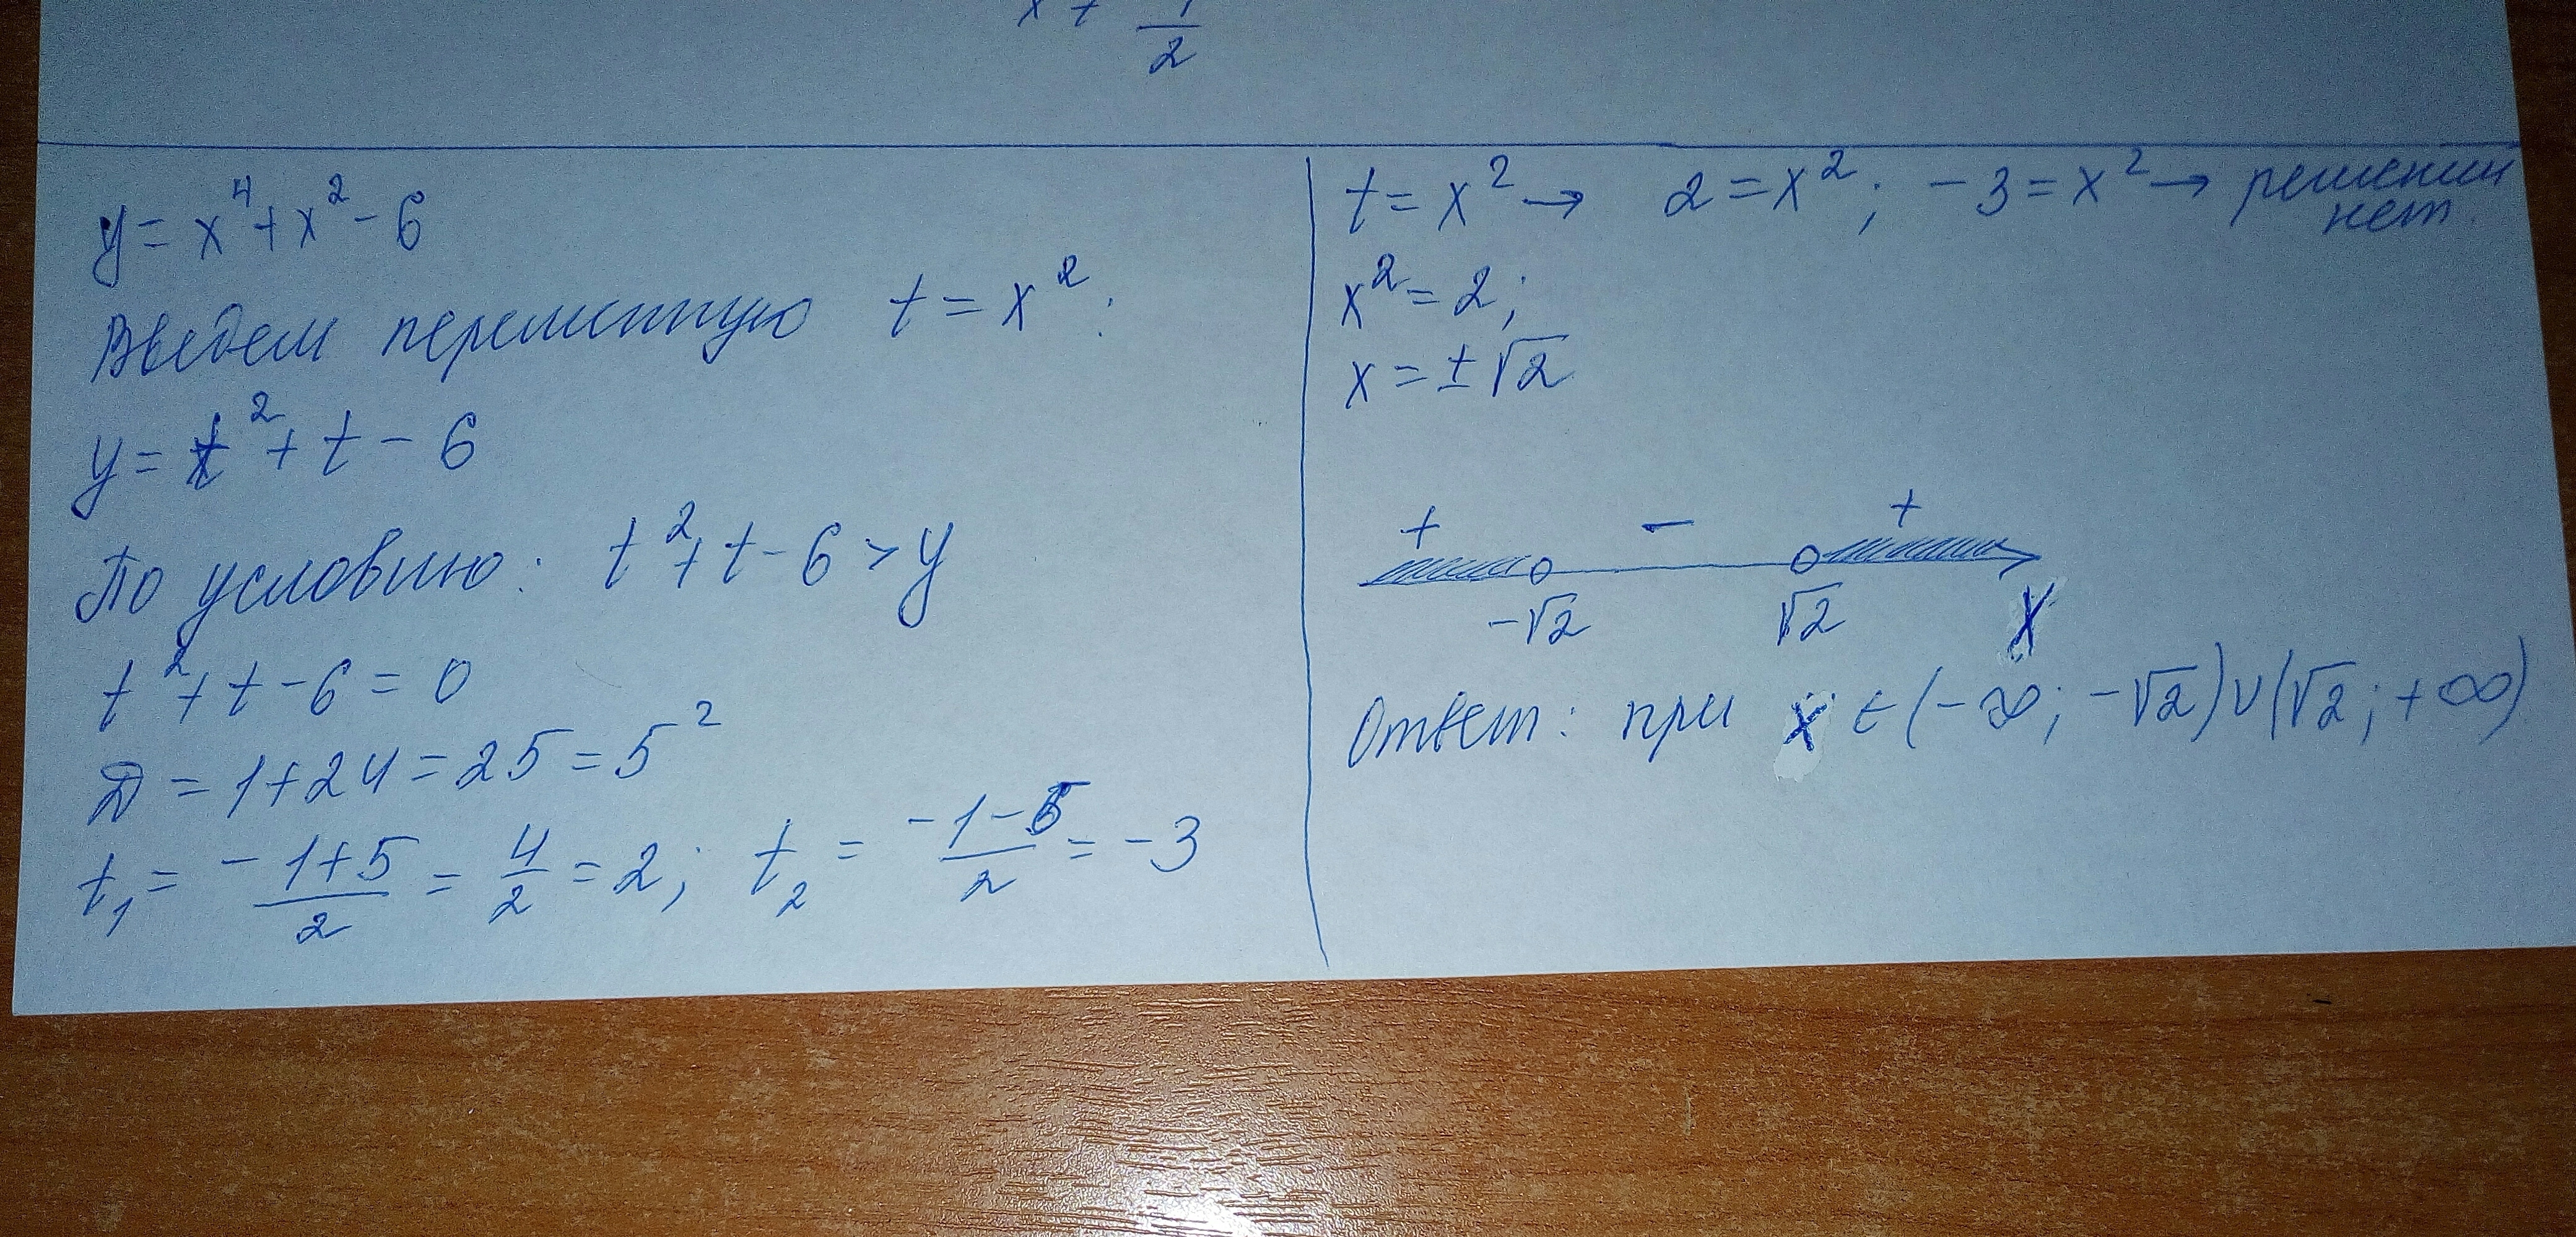 x + 1/2
y = x⁴ + x² - 6
Введем переменную t = x²:
y = t² + t - 6
По условию: t² + t - 6 > y
t² + t - 6 = 0
D = 1 + 24 = 25 = 5²
t₁ = (-1+5)/2 = 4/2 = 2; t₂ = (-1-5)/2 = -3
t = x² → 2 = x²; -3 = x² → решений
нет.
x² = 2;
x = ±√2
+ - +
-√2 √2 X
Ответ: при x ∈ (-∞; -√2) ∪ (√2; +∞)